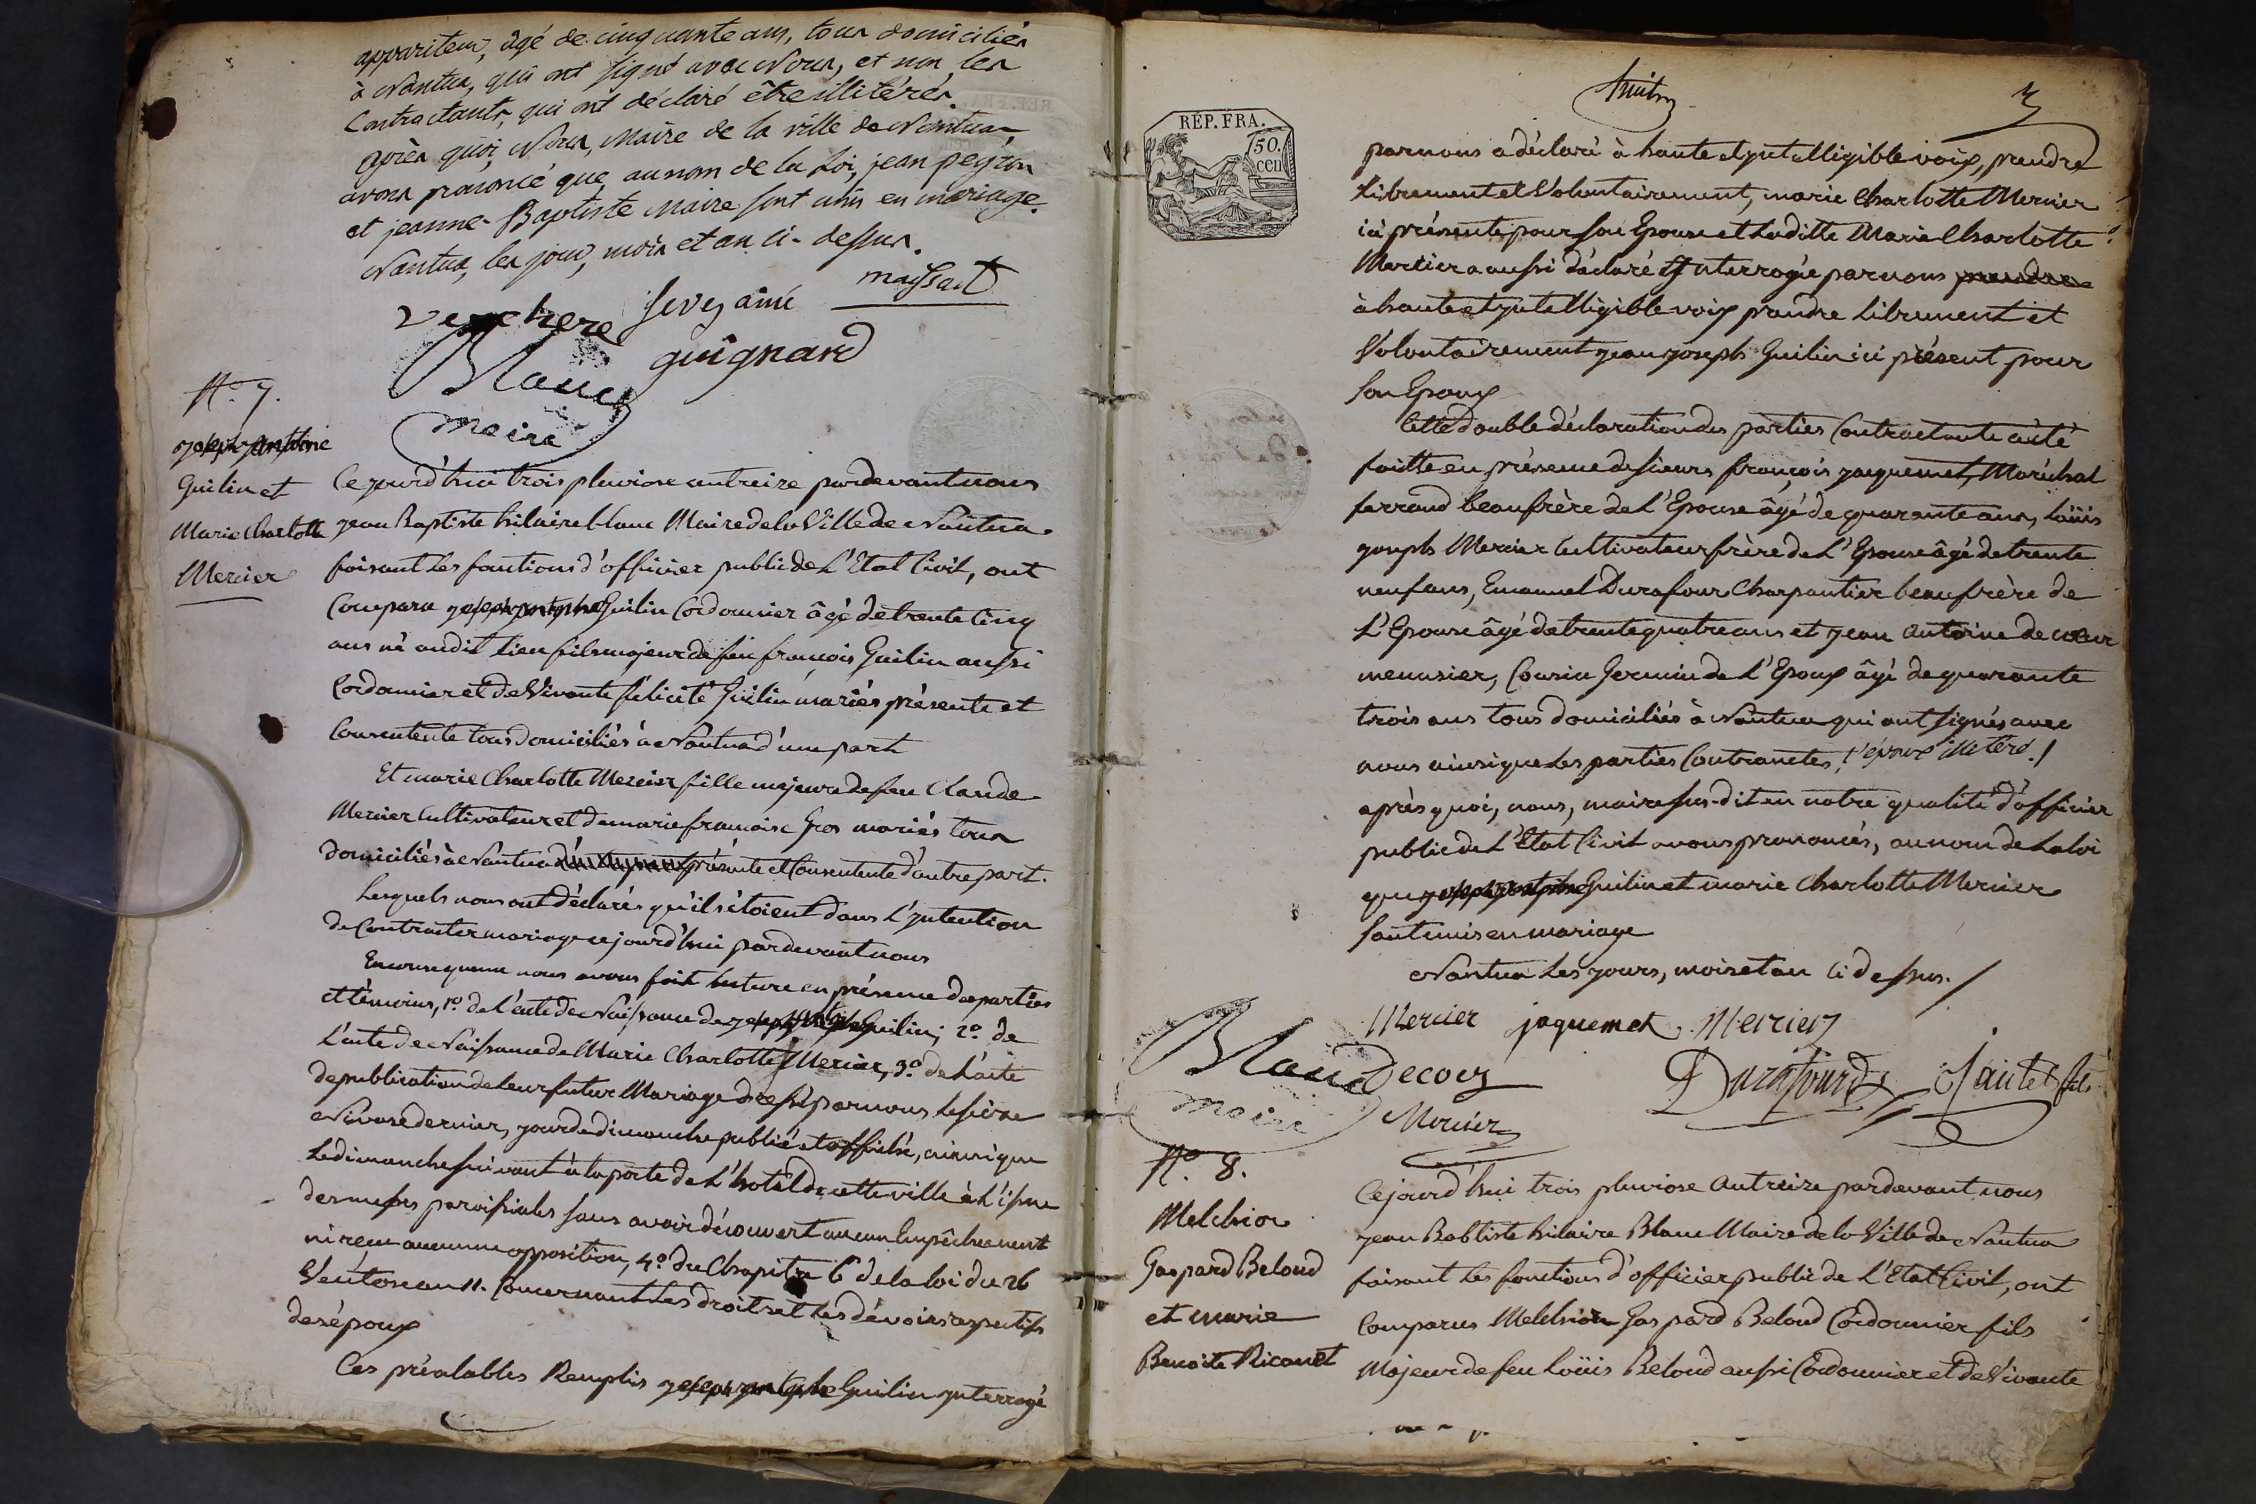 appariteur, âgé de cinquante ans, tous domiciliés
à Nantua, qui ont signé avec Nous, et non les
Contractants, qui ont déclaré être illitérés.
après quoi, Nous, Maire de la ville de Nantua
avons prononcé que, au nom de la Loi, jean peyron
et jeanne-Baptiste Maire sont unis en mariage.
Nantua, les jour, mois et an ci-dessus.
verchere sevez aimé maissiat
guignard
Blanc
maire
N.o 7.
Guilin et
Marie Charlotte
Mercier
Ce jourd'hui trois pluviose an treize pardevant nous
jean Baptiste hilaire blanc Maire de la Ville de Nantua
faisant les fonctions d'officier public de L'Etat Civil, ont
Comparu Guilin Cordonnier âgé de trente Cinq
ans né audit lieu fils majeur de feu françois Guilin aussi
Cordonnier et de Vivante félicité Guilin mariés présente et
Consentente tous domiciliés à Nantua d'une part
Et marie Charlotte Mercier fille majeure de feu Claude
Mercier Cultivateur et de marie francoise Gros mariés tous
domiciliés à Nantua présente et Consentente d'autre part.
Lesquels nous ont déclarés qu'il s'étoient dans L'yntention
de Contracter mariage ce jourd'hui pardevant nous
En consequence nous avons fait lecture en présence des parties
et témoins, 1.o de l'acte de Naissance de Guilin; 2.o de
L'acte de Naissance de Marie Charlotte Mercier, 3.o de L'acte
de publication de leur futur Mariage dressé par nous le
Nivose dernier, jour de dimanche publié et affiché, ainsi que
Le dimanche suivant à la porte de L'hotel de cette ville à L'issue
des messes paroissiales sans avoir découvert aucun Empêchement
ni reçu aucune opposition, 4.o du Chapitre 6 de la loi du 26
Ventose an 11. Concernant les droits et les dévoirs respectifs
des époux
Ces préalables Remplis Guilin ynterrogé
3
REP. FRA.
50. cen
par nous a déclaré à haute et yntelligible voix, prendre
Librement et Volontairement, marie Charlotte Mercier
ici présente pour son Epouse et Laditte Marie Charlotte
Mercier a aussi déclaré et ynterrogée par nous prendre
à haute et yntelligible voix prendre Librement et
Volontairement jean joseph Guilin ici présent pour
son Epoux
Cette double déclaration des parties Contractante a été
faitte en présence des sieurs françois jacquemet, Maréchal
ferrand beaufrère de L'Epouse âgé de quarante ans, Loüis
joseph Mercier Cultivateur frère de L'Epouse âgé de trente
neuf ans, Emanuel Durafour Charpantier beaufrère de
L'Epouse âgé de trente quatre ans et jean antoine de coeur
menusier, Cousin Germain de L'Epoux âgé de quarante
trois ans tous domiciliés à Nantua qui ont signés avec
nous ainsi que les parties Contractes, l'époux illetéré./
après quoi, nous, maire sus-dit en notre qualité d'officier
public de L'Etat Civil avons prononcés, au nom de La loi
que Guilin et marie Charlotte Mercier
sont unis en mariage
Nantua Les jours, mois et an Ci dessus./
Mercier jaquemet Mercier
Blanc Decoeur Durafourd Jantet fils
maire Mercier
N.o 8.
Melchior
Gaspard Beloud
et marie
Benoite Ricanet
Ce jourd'hui trois pluviose an treize pardevant nous
jean Babtiste hilaire Blanc Maire de la Ville de Nantua
faisant les fonctions d'officier public de L'Etat Civil, ont
Comparus Melchior Gaspard Beloud Cordonnier fils
Majeur de feu Loüis Beloud aussi Cordonnier et de Vivante